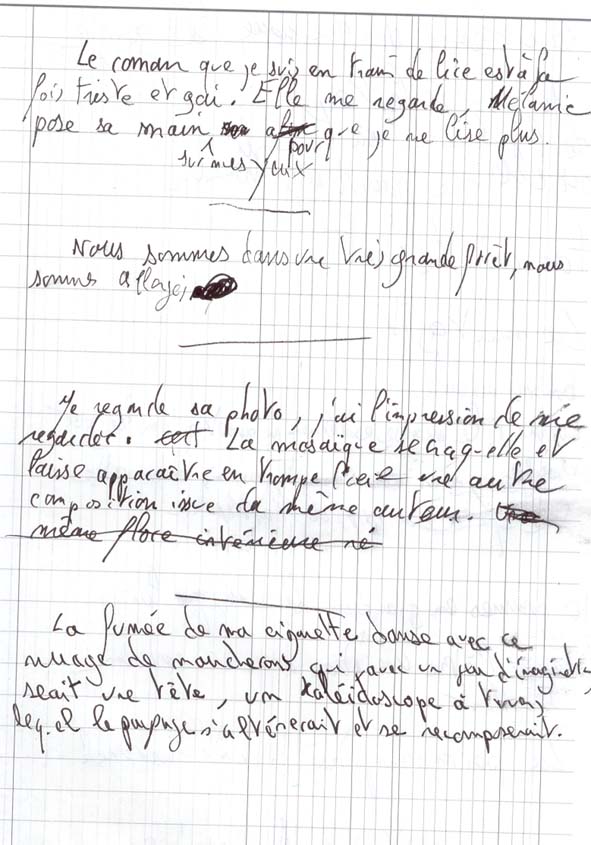 Le roman que je suis en train de lire est à la
fois triste et gai. Elle me regarde, Mélanie
pose sa main pour que je ne lise plus.
sur mes yeux
Nous sommes dans une très grande forêt, nous
sommes
Je regarde sa photo, j'ai l'impression de me
regarder. La mosaïque se craquelle et
laisse apparaître en trompe l'oeil une autre
composition issue du même auteur.
même flore intérieure né
La fumée de ma cigarette danse avec ce
nuage de moucherons qui, avec un peu d'imagination,
serait une rêve, un kaléidoscope à travers
lequel le paysage s'altérerait et se recomposerait.